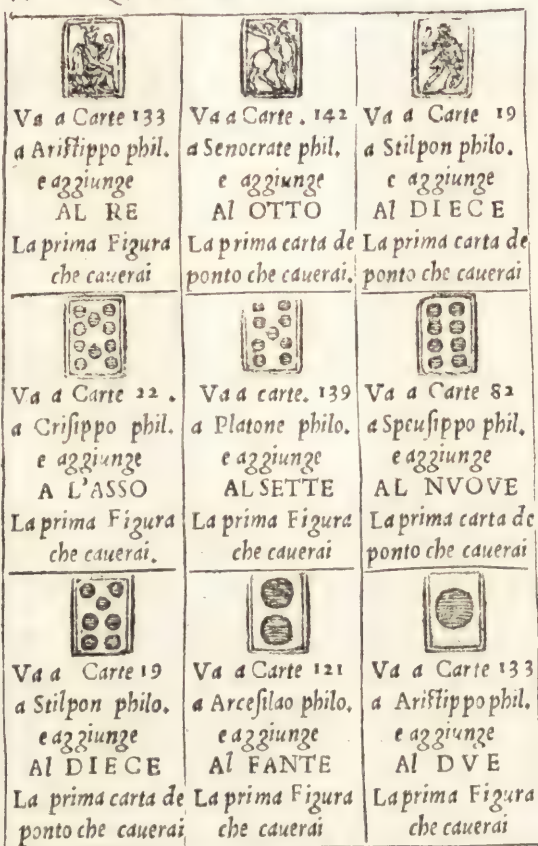 Va a Carte 133
a Ariſtippo phil.
e aggiunge
AL RE
La prima Figura
che cauerai
Va a Carte . 142
a Senocrate phil.
e aggiunge
Al OTTO
La prima carta de
ponto che cauerai.
Va a Carte 19
a Stilpon philo.
e aggiunge
Al DIECE
La prima carta de
ponto che cauerai
Va a Carte 22 .
a Criſippo phil.
e aggiunge
A L'ASSO
La prima Figura
che cauerai.
Va a carte. 139
a Platone philo.
e aggiunge
AL SETTE
La prima Figura
che cauerai
Va a Carte 82
a Speuſippo phil.
e aggiunge
AL NVOVE
La prima carta de
ponto che cauerai
Va a Carte 19
a Stilpon philo.
e aggiunge
Al DIECE
La prima carta de
ponto che cauerai
Va a Carte 121
a Arceſilao philo.
e aggiunge
Al FANTE
La prima Figura
che cauerai
Va a Carte 133
a Ariſtippo phil.
e aggiunge
Al DVE
La prima Figura
che cauerai